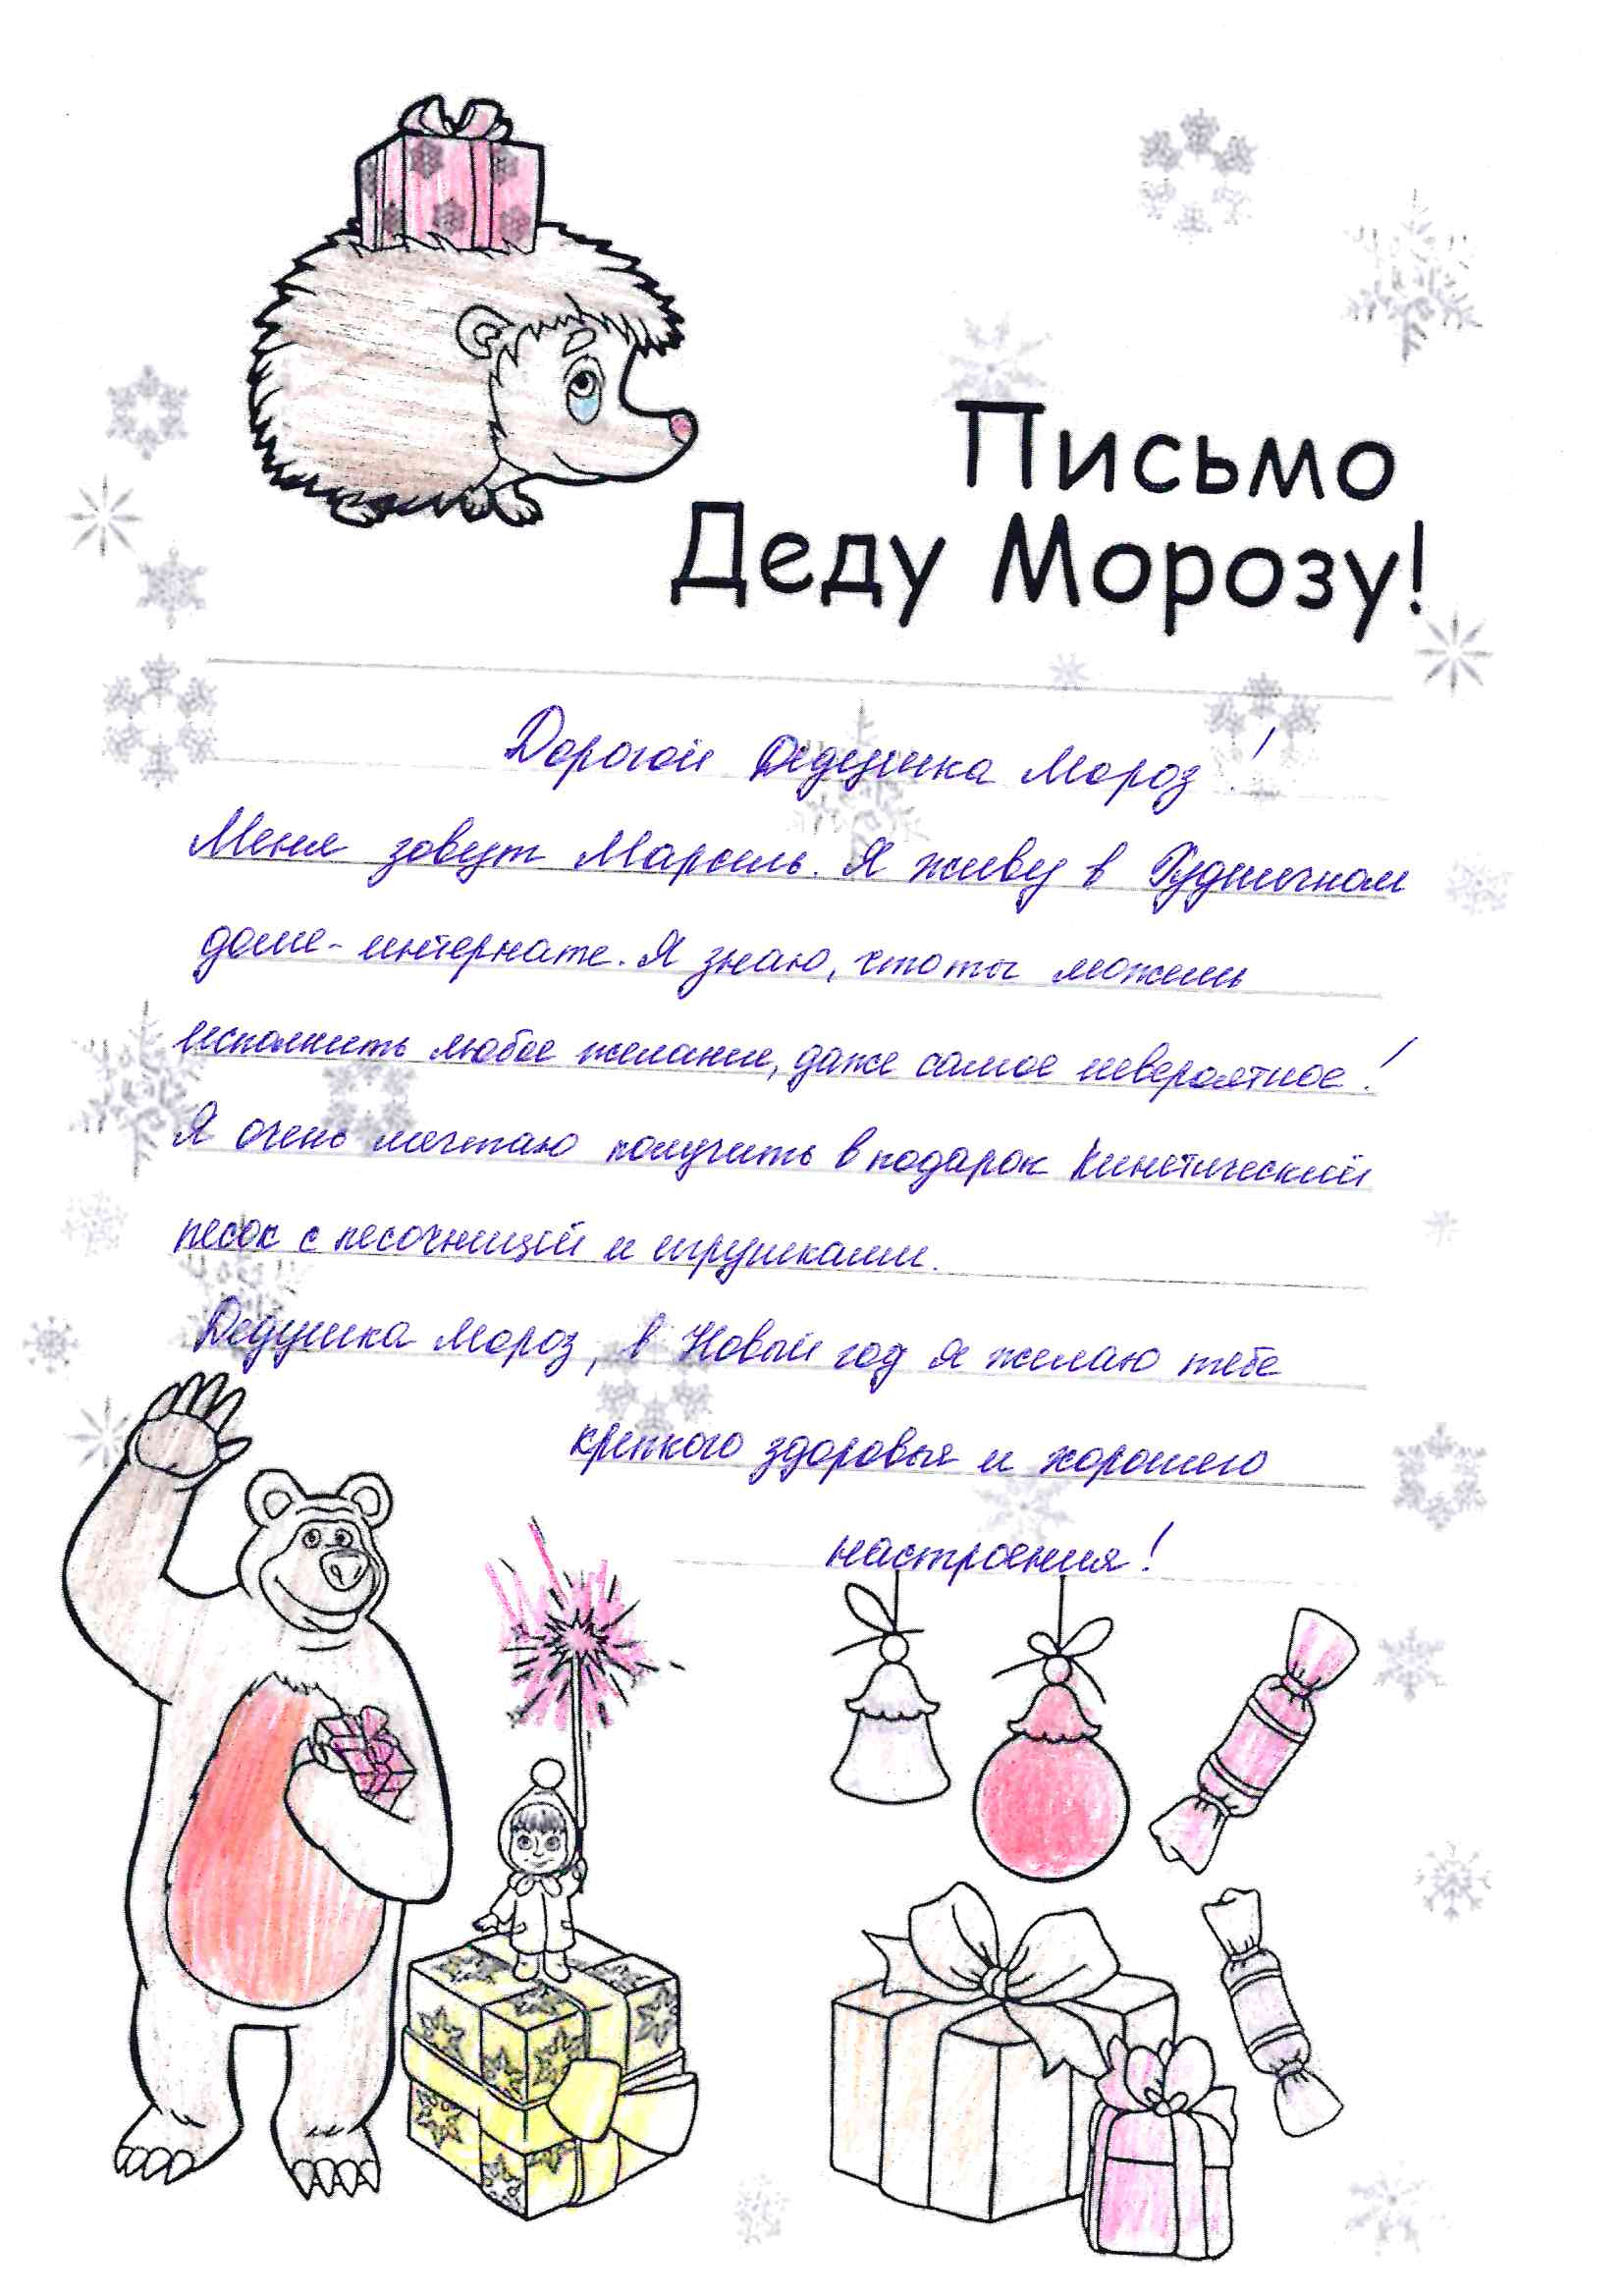 Письмо
Деду Морозу!
Дорогой Дедушка Мороз!
Меня зовут Марсель. Я живу в Рудничном
доме-интернате. Я знаю, что ты можешь
исполнить любое желание, даже самое невероятное!
Я очень мечтаю получить в подарок Кинетический
песок с песочницей и игрушками.
Дедушка Мороз, в Новый год я желаю тебе
крепкого здоровья и хорошего
настроения!